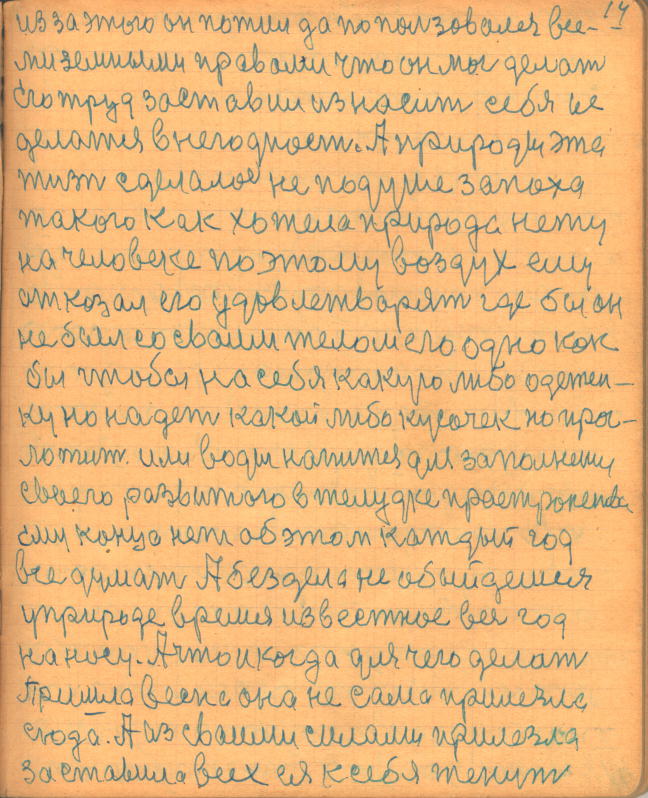 14
из за этого он пожил да по пользовался все-
ми земными правами что он мог делат
Его труд заставил износит себя и с
делатся в негодност. А природы эта
жизн сделалос не по душе запоха
такого как хотела природа нету
на человеке поэтому воздух ему
отказал его удовлетворят где бы он
не был со своим телом его одно как
бы чтобы на себя какую либо одежен-
ку но надет какой либо кусочек но прог-
лотит. или воды напится для заполнению
своего развитого в желудке пространства
ему конца нет об этом каждый год
все думат А без дела не обыйдешся
у природе время известное все год
на носу. А что и когда для чего делат
Пришла весна она не сама прилезла
сюда. А из своими силами прилезла
заставила всех ея к себя тенут